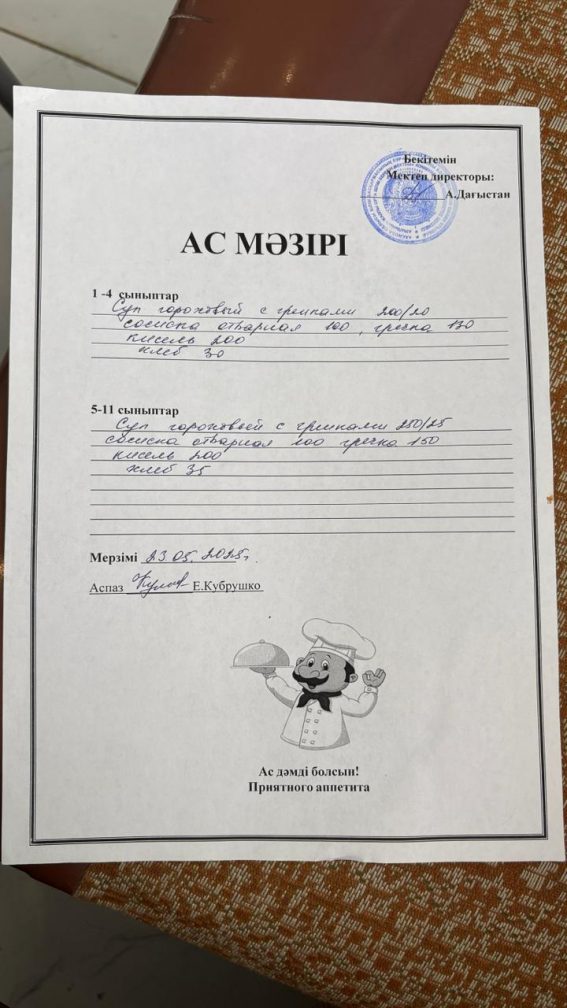 Бекітемін
Мектеп директоры:
А.Дағыстан
АС МӘЗІРІ
1 -4 сыныптар
Суп гороховый с гренками 200/20
сосиска отварная 100, гречка 130
кисель 200
хлеб 30
5-11 сыныптар
Суп гороховый с гренками 250/25
сосиска отварная 100 гречка 150
кисель 200
хлеб 35
Мерзімі 23.05.2025г.
Аспаз Е.Кубрушко
Ас дәмді болсын!
Приятного аппетита